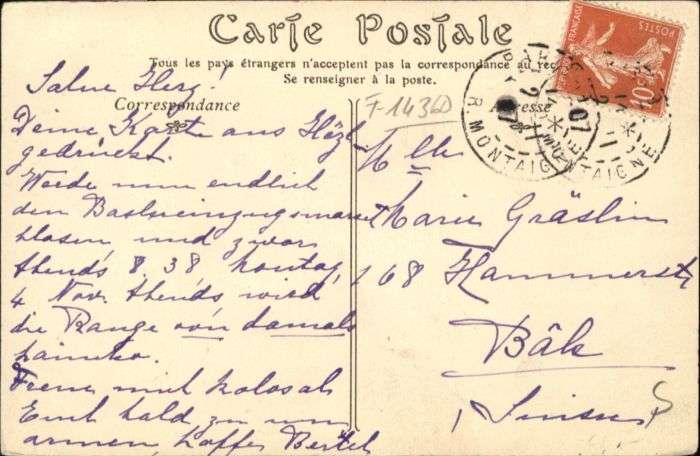 Carte Postale
Tous les pays étrangers n'acceptent pas la correspondance au rec
Se renseigner à la poste.
Correspondance
Adresse
F1436
Salue Herz!
Deine Karte ans Herz
gedrückt.
Werde nun endlich
den Baslereinzugsmarsch
blasen und zwar
Abends 8.38 Montag,
4 Nov. Abends wird
die Range von damals
Freue mich kolosal
Euch bald zu
armen, Bertel
Mlle
Marie Gräslin
168 Hammerstr
Bâle
Suisse
R. MONTAIGNE
07
MONTAIGNE
POSTES
10